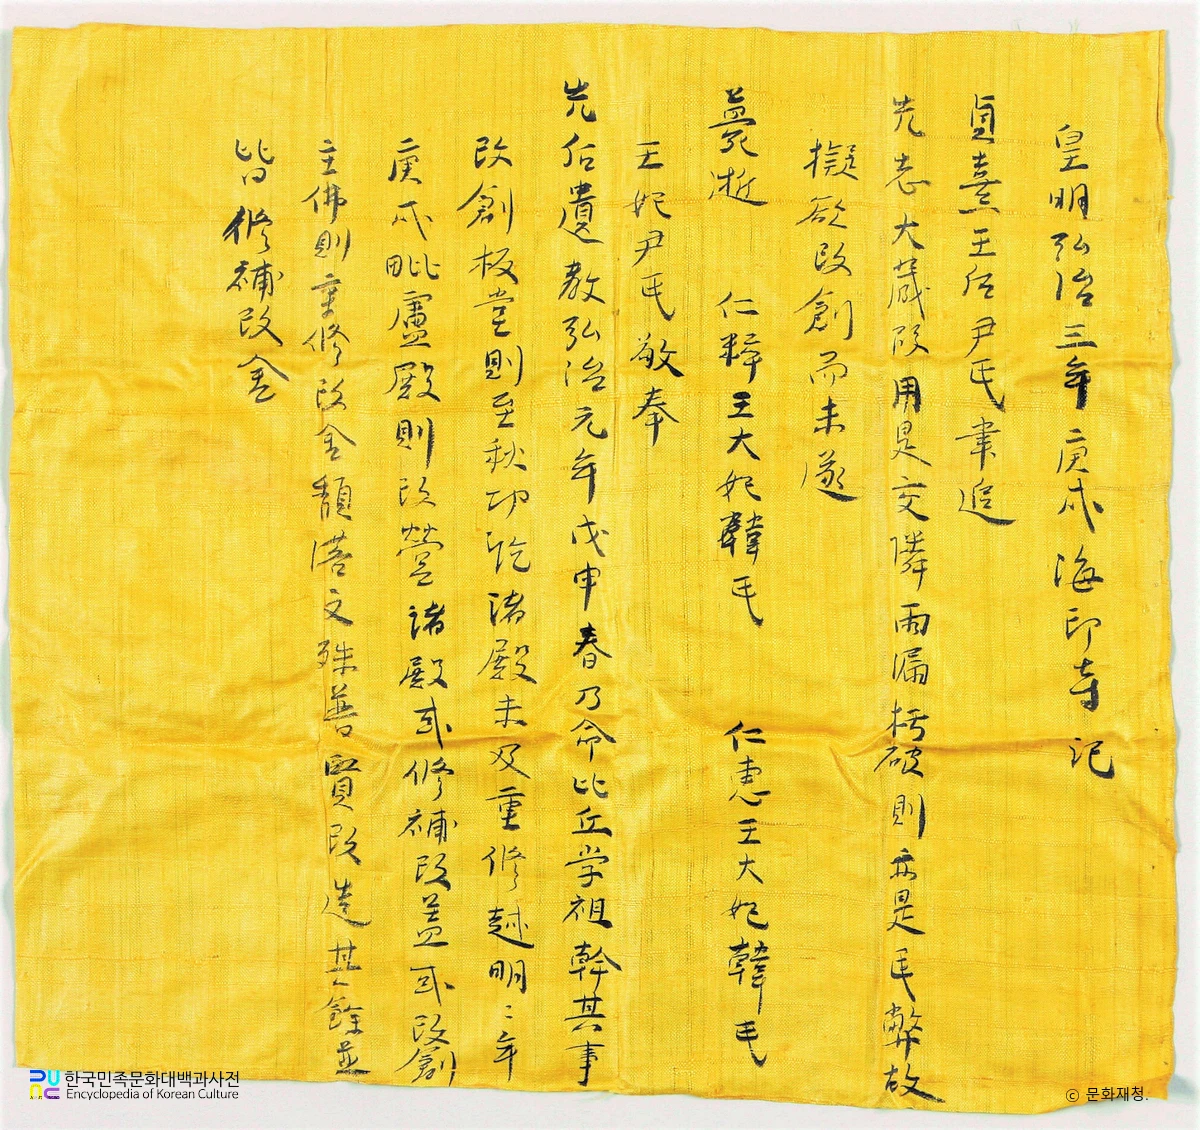 皇明弘治三年庚戌海印寺記
貞熹王后尹氏聿追
先志大藏殿用是交隣雨漏朽破則亦是民弊故
擬欲改創而未遂
薨逝 仁粹王大妃韓氏 仁惠王大妃韓氏
王妃尹氏敬奉
先后遺教弘治元年戊申春乃命比丘学祖幹其事
改創板堂則至秋功訖諸殿未及重修越明〻年
庚戌毗盧殿則改營諸殿或修補改盖或改創
主佛則重修改金頹落文殊普賢改造其餘並
皆修補改金
한국민족문화대백과사전
Encyclopedia of Korean Culture
ⓒ 문화재청.